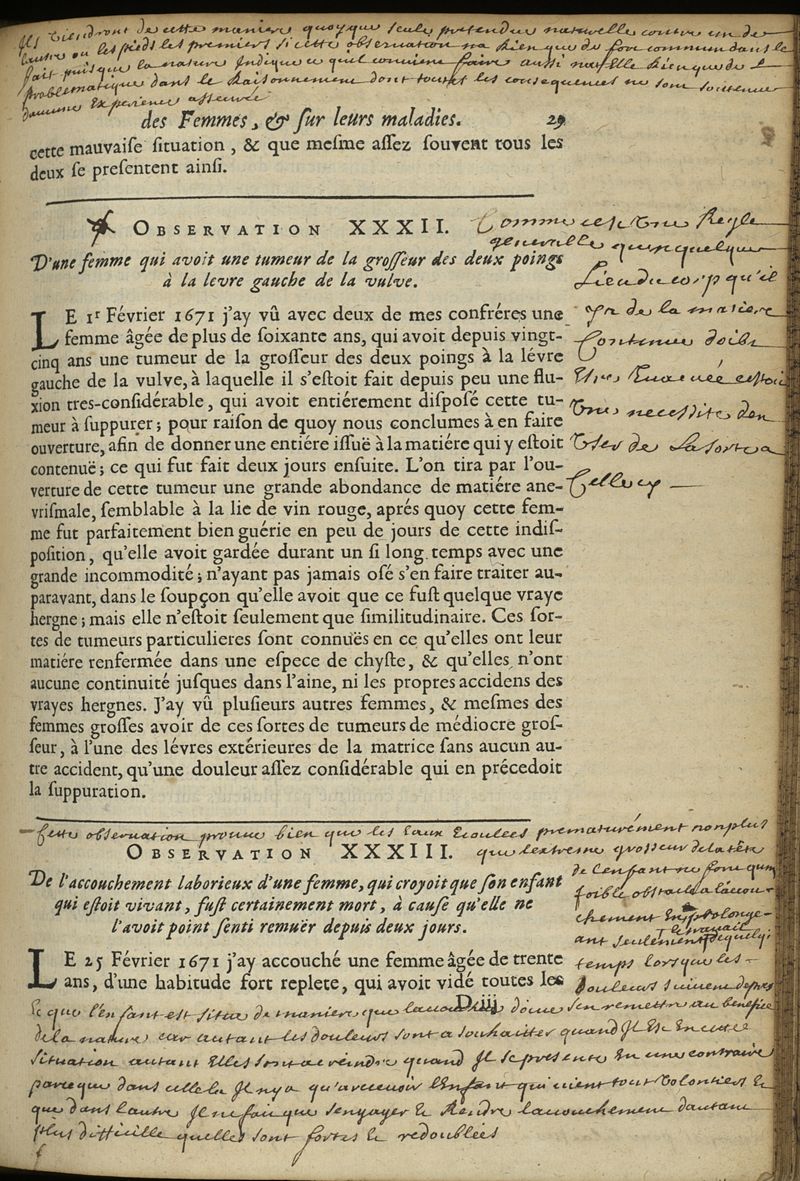 Ils tiendront de cette maniere quoyque seule pretendue naturelle contre un de
l'autre ou les pieds les premiers si cette observation na rien que de fort commun dans le
fait puisque la nature Indique ce quil convient faire aussi na elle rien que de
problematique dans le Raisonnement dont toutes les consequences ne sont soutenues
daucune Experience asseurée
des Femmes, & ſur leurs maladies. 29
cette mauvaiſe ſituation, & que meſme aſſez ſouvent tous les
deux ſe preſentent ainſi.
OBSERVATION XXXII.
D'une femme qui avoit une tumeur de la groſſeur des deux poings
à la levre gauche de la vulve.
LE 1ʳ Février 1671 j'ay vû avec deux de mes confréres une
femme âgée de plus de ſoixante ans, qui avoit depuis vingt-
cinq ans une tumeur de la groſſeur des deux poings à la lévre
gauche de la vulve, à laquelle il s'eſtoit fait depuis peu une flu-
xion tres-conſidérable, qui avoit entiérement diſpoſé cette tu-
meur à ſuppurer; pour raiſon de quoy nous conclumes à en faire
ouverture, afin de donner une entiére iſſuë à la matiére qui y eſtoit
contenuë; ce qui fut fait deux jours enſuite. L'on tira par l'ou-
verture de cette tumeur une grande abondance de matiére ane-
vriſmale, ſemblable à la lie de vin rouge, aprés quoy cette fem-
me fut parfaitement bien guérie en peu de jours de cette indiſ-
poſition, qu'elle avoit gardée durant un ſi long temps avec une
grande incommodité; n'ayant pas jamais oſé s'en faire traiter au-
paravant, dans le ſoupçon qu'elle avoit que ce fuſt quelque vraye
hergne; mais elle n'eſtoit ſeulement que ſimilitudinaire. Ces ſor-
tes de tumeurs particulieres ſont connuës en ce qu'elles ont leur
matiére renfermée dans une eſpece de chyſte, & qu'elles n'ont
aucune continuité juſques dans l'aine, ni les propres accidens des
vrayes hergnes. J'ay vû pluſieurs autres femmes, & meſmes des
femmes groſſes avoir de ces ſortes de tumeurs de médiocre groſ-
ſeur, à l'une des lévres extérieures de la matrice ſans aucun au-
tre accident, qu'une douleur aſſez conſidérable qui en précedoit
la ſuppuration.
Comme cest Une Regle
generalle quen quelque
Lieu du corp qu'il
y a de la matiere
Contenue doibt
Estre Evacuée estoit
Une necessité den
User de La sorte a
Celle cy
Cette observation prouve bien que les Eaux Ecoulees prematurément nonplus
OBSERVATION XXXIII.
que lextreme grosseur de la tete
de Lenfant ne font qun
foible obstacle a laccou-
chement En prolonge-
ant seulement le travail de quelq;
temps lorsque les
douleurs suivent depres
De l'accouchement laborieux d'une femme, qui croyoit que ſon enfant
qui eſtoit vivant, fuſt certainement mort, à cauſe qu'elle ne
l'avoit point ſenti remuër depuis deux jours.
LE 25 Février 1671 j'ay accouché une femme âgée de trente
ans, d'une habitude fort replete, qui avoit vidé toutes les
D iij
Et que l'enfant est situé de maniere que laccoucheur doive sen remettre au benefice
de la nature car autant les douleurs sont a souhaitter quand Il Est En cette
situation autant Elles sont a craindre quand Il se presente En une contraire
parce que dans celle la Il ny a qu'a recevoir l'Enfant qui vient tout Volontiers Et
que dans lautre Il ne fait que sengager Et Rendre laccouchement dautant
plus difficille quelles sont fortes Et redoublées